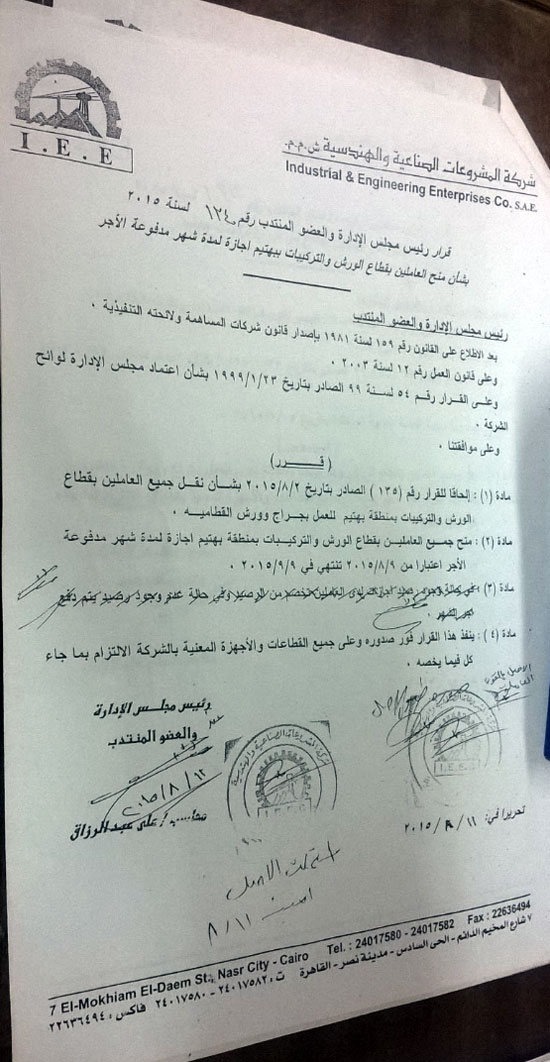 I . E . E
شركة المشروعات الصناعية والهندسية ش.م.م.
Industrial & Engineering Enterprises Co. S.A.E.
قرار رئيس مجلس الإدارة والعضو المنتدب رقم ١٣٤ لسنة ٢٠١٥
بشأن منح العاملين بقطاع الورش والتركيبات ببهتيم اجازة لمدة شهر مدفوعة الأجر
رئيس مجلس الإدارة والعضو المنتدب
بعد الاطلاع على القانون رقم ١٥٩ لسنة ١٩٨١ بإصدار قانون شركات المساهمة ولائحته التنفيذية ٠
وعلى قانون العمل رقم ١٢ لسنة ٢٠٠٣ ٠
وعلى القرار رقم ٥٤ لسنة ٩٩ الصادر بتاريخ ١٩٩٩/١/٢٣ بشأن اعتماد مجلس الإدارة لوائح
الشركة ٠
وعلى موافقتنا ٠
( قـــرر )
مادة (١) : إلحاقا للقرار رقم (١٣٥) الصادر بتاريخ ٢٠١٥/٨/٢ بشأن نقل جميع العاملين بقطاع
الورش والتركيبات بمنطقة بهتيم للعمل بجراج وورش القطاميه ٠
مادة (٢) : منح جميع العاملين بقطاع الورش والتركيبات بمنطقة بهتيم اجازة لمدة شهر مدفوعة
الأجر اعتبارا من ٢٠١٥/٨/٩ تنتهي في ٢٠١٥/٩/٩ ٠
مادة (٣) : في حالة وجود رصيد اجازات لدى العاملين تخصم من الرصيد وفي حالة عدم وجود رصيد يتم دفع
اجر الشهر ٠
مادة (٤) : ينفذ هذا القرار فور صدوره وعلى جميع القطاعات والأجهزة المعنية بالشركة الالتزام بما جاء
كل فيما يخصه ٠
رئيس مجلس الإدارة
والعضو المنتدب
٢٠١٥/٨/١٢
محاسب / على عبد الرازق
تحريرا في : ٢٠١٥/٨/١١
استلمت الاصل
٨/١١
7 El-Mokhiam El-Daem St., Nasr City - Cairo Tel. : 24017580 - 24017582 Fax : 22636494
٧ شارع المخيم الدائم - الحى السادس - مدينة نصر - القاهرة ت : ٢٤٠١٧٥٨٢ - ٢٤٠١٧٥٨٠ فاكس : ٢٢٦٣٦٤٩٤